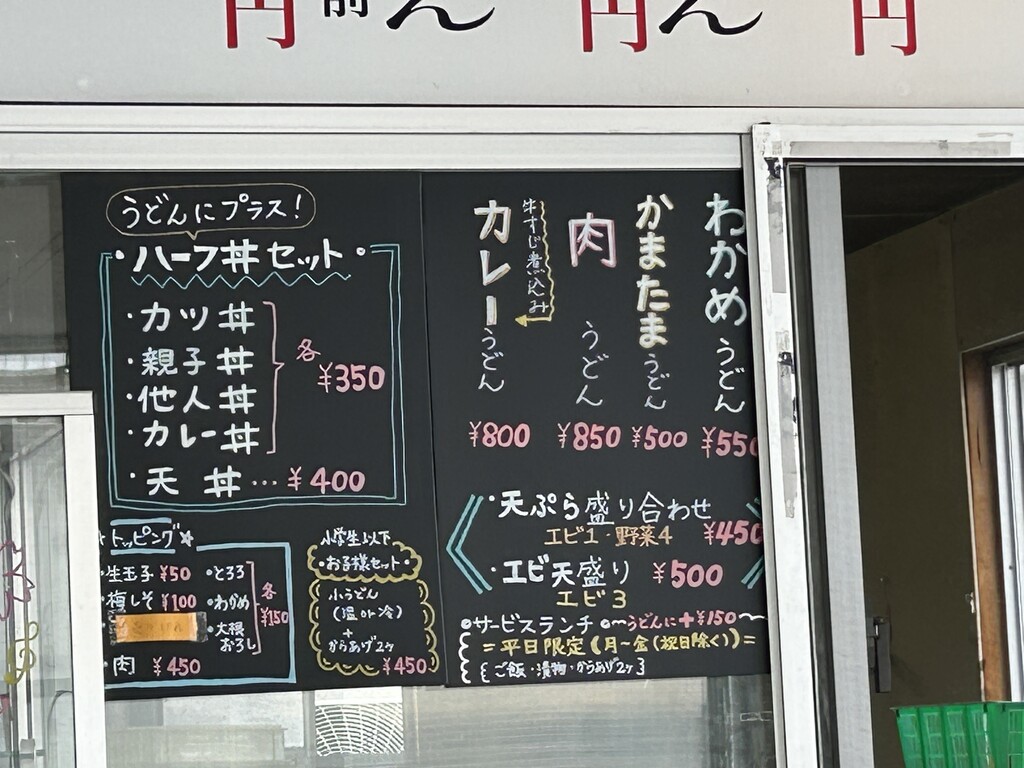 円 前 ん 円 ん 円
うどんにプラス!
・ハーフ丼セット・
・カツ丼
・親子丼
・他人丼
・カレー丼
各
¥350
・天丼…¥400
★トッピング★
・生玉子 ¥50
・梅しそ ¥100
・肉 ¥450
・とろろ
・わかめ
・大根おろし
各
¥150
小学生以下
・お子様セット・
小うどん
(温or冷)
+
からあげ2ヶ
¥450
わかめうどん
¥550
かまたまうどん
¥500
肉うどん
¥850
牛すじ煮込み
カレーうどん
¥800
・天ぷら盛り合わせ
エビ1・野菜4 ¥450
・エビ天盛り ¥500
エビ3
◎サービスランチ◎〜うどんに+¥150〜
=平日限定(月〜金(祝日除く))=
{ご飯・漬物・からあげ2ヶ}